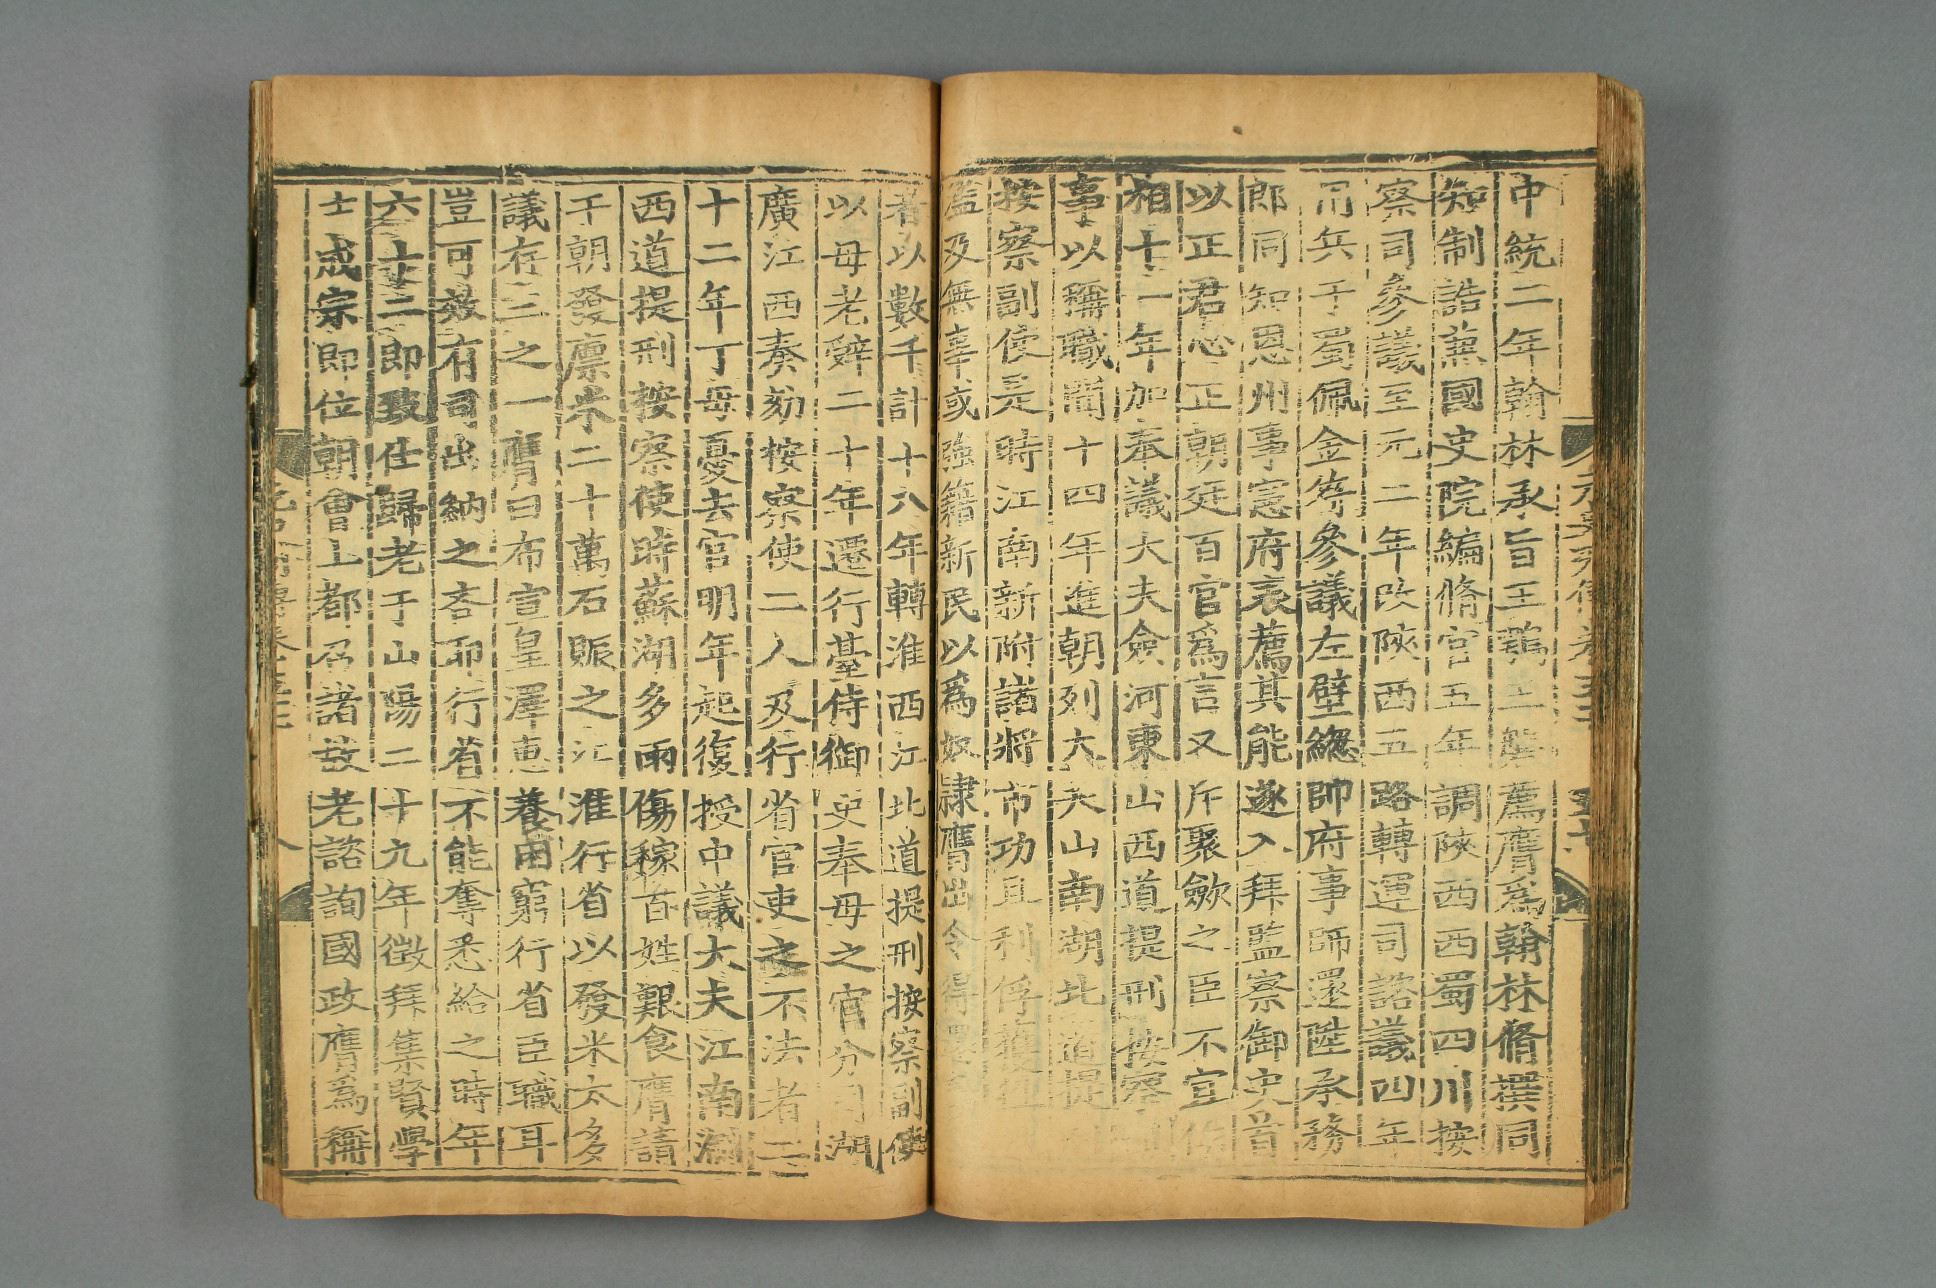 中統二年翰林承旨王鶚王磐薦膺爲翰林脩撰同
知制誥兼國史院編脩官五年調陝西西蜀四川按
察司參議至元二年改陝西五路轉運司諮議四年
用兵于蜀佩金符參議左壁緫帥府事師還陞承務
郎同知恩州事憲府表薦其能遂入拜監察御史首
以正君心正朝廷百官爲言又斥聚歛之臣不宜作
相十一年加奉議大夫僉河東山西道提刑按察司
事以稱職聞十四年進朝列大夫山南湖北道提
按察副使是時江南新附諸將市功且利俘獲
濫及無辜或強籍新民以爲奴隷膺出令得
者以數千計十八年轉淮西江北道提刑按察副使
以母老辭二十年遷行臺侍御史奉母之官分司湖
廣江西奏劾按察使二人及行省官吏之不法者二
十二年丁母憂去官明年起復授中議大夫江南浙
西道提刑按察使時蘇湖多雨傷稼百姓艱食膺請
于朝發廪米二十萬石賑之江淮行省以發米太多
議存三之一膺曰布宣皇澤惠養困窮行省臣職耳
豈可效有司出納之吝耶行省不能奪悉給之時年
六十二即致仕歸老于山陽二十九年徵拜集賢學
士成宗即位朝會上都召諸故老諮詢國政膺爲稱